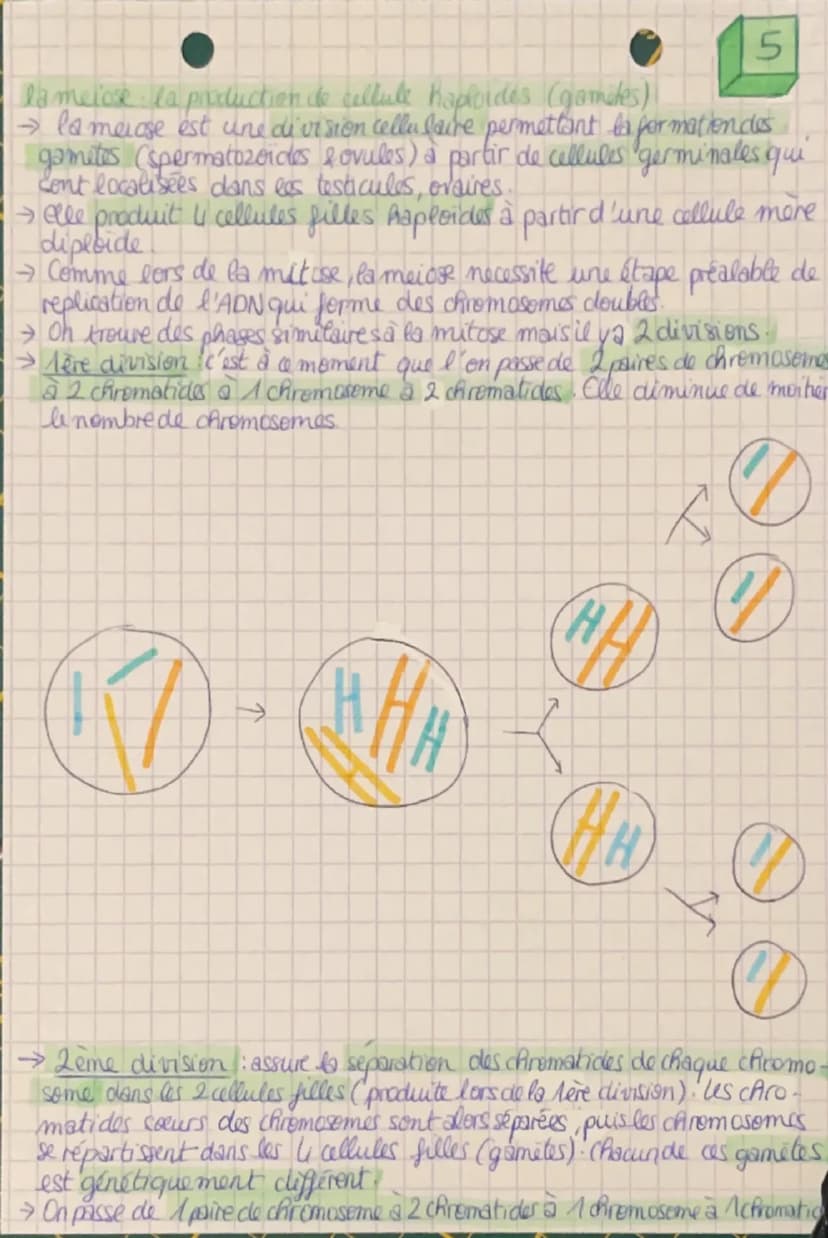 5
la meiose : la production de cellule haploïdes (gametes)
→ la meiose est une division cellulaire permettant la formation des
gametes (spermatozoïdes & ovules) à partir de cellules germinales qui
sont localisées dans les testicules, ovaires.
→ elle produit 4 cellules filles haploïdes à partir d'une cellule mère
diploïde.
→ Comme lors de la mitose, la meiose necessite une étape préalable de
replication de l'ADN qui forme des chromosomes doubles.
→ On trouve des phases similaires à la mitose mais il y a 2 divisions.
→ 1ère division : c'est à ce moment que l'on passe de 2 paires de chromosome
à 2 chromatides à 1 chromosome à 2 chromatides. Elle diminue de moitier
le nombre de chromosomes
→ 2ème division : assure la séparation des chromatides de chaque chromo-
some dans les 2 cellules filles (produite lors de la 1ère division). Les chro-
matides sœurs des chromosomes sont alors séparées, puis les chromosomes
se répartissent dans les 4 cellules filles (gametes). Chacun de ces gamètes
est génétiquement différent.
→ On passe de 1 paire de chromosome à 2 chromatides à 1 chromosome à 1 chromatid